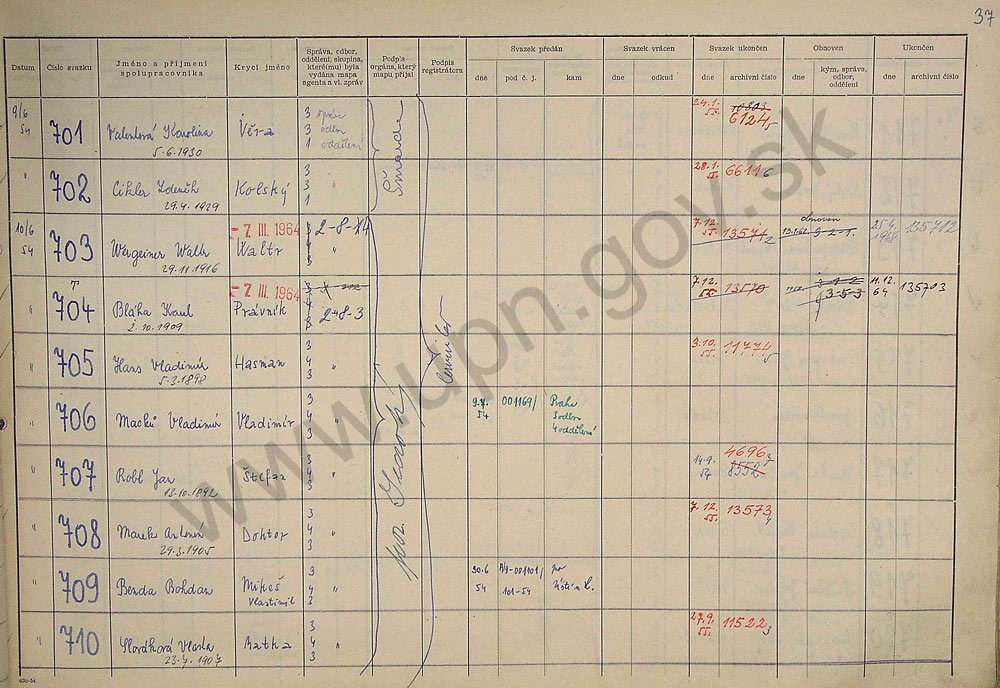 37
Datum
Číslo svazku
Jméno a příjmení spolupracovníka
Krycí jméno
Správa, odbor, oddělení, skupina, které(mu) byla vydána mapa agenta a vl. zpráv
Podpis orgánu, který mapu přijal
Podpis registrátora
Svazek předán
dne
pod č. j.
kam
Svazek vrácen
dne
odkud
Svazek ukončen
dne
archivní číslo
Obnoven
dne
kým, správa, odbor, oddělení
Ukončen
dne
archivní číslo
9/6 54 701 Valentová Karolina 5.6.1930 Věra 3 správa 3 odbor 1 oddělení 24.1. 55. 6124
" 702 Cikler Zdeněk 29.4.1929 Kolský 3 3 1 28.1. 55. 6611
10/6 54 703 Wergeiner Walt 29.11.1916 -7. III. 1964 Waltr 2-8-14 7.12. 55. 13571 obnoven 9-2-1. 135712
" 704 Bláha Karel 2.10.1909 -7. III. 1964 Právník 2-8-3 7.12. 55. 13570 3-1-2 3-5-3 11.12. 64 135703
" 705 Hans Vladimír 5.3.1898 Hasman 3 4 3 " 3.10. 55. 11774
" 706 Macků Vladimír Vladimír 3 4 3 " 54 001169/ Praha 3 odbor 4 oddělení
" 707 Robl Jan 13.10.1892 Štefan 3 4 3 " 14.9. 4696 8552
" 708 Marek Antonín 29.3.1905 Doktor 3 4 3 " 7.12. 55. 13573
" 709 Benda Bohdan Mikeš Vlastimil 3 4 3 " 30.6 54 101-54
" 710 Slováková Vlasta 23.4.1907 Matka 3 4 3 " 27.9. 55. 11522
www.upn.gov.sk